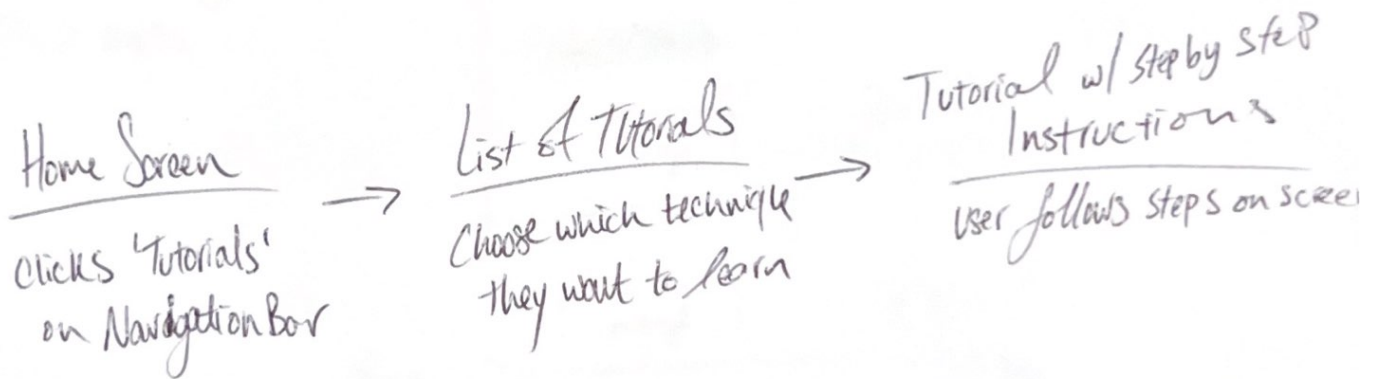 Home Screen
Clicks 'Tutorials'
on Navigation Bar
List of Tutorials
Choose which technique
they want to learn
Tutorial w/ step by step
Instructions
user follows steps on screen